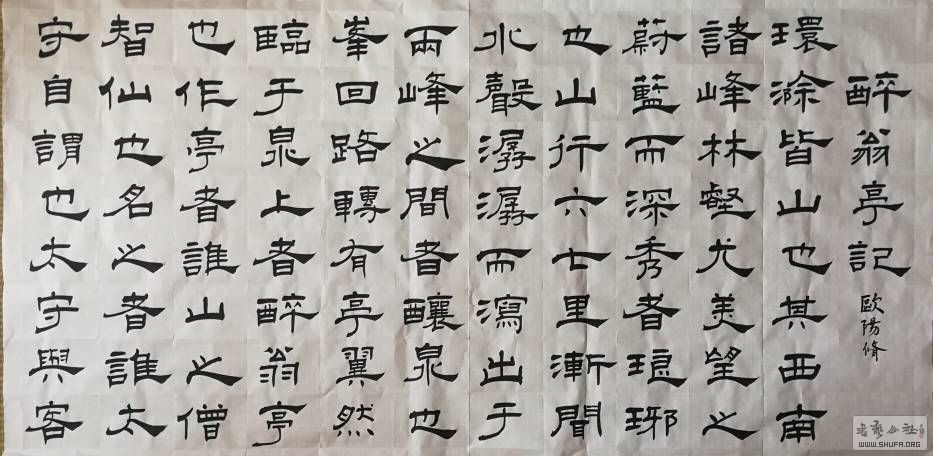 醉翁亭記 歐陽脩
環滁皆山也其西南
諸峰林壑尤美望之
蔚藍而深秀者琅琊
也山行六七里漸聞
水聲潺潺而瀉出于
兩峰之間者釀泉也
峯回路轉有亭翼然
臨于泉上者醉翁亭
也作亭者誰山之僧
智仙也名之者誰太
守自謂也太守與客
书艺公社
WWW.SHUFA.ORG